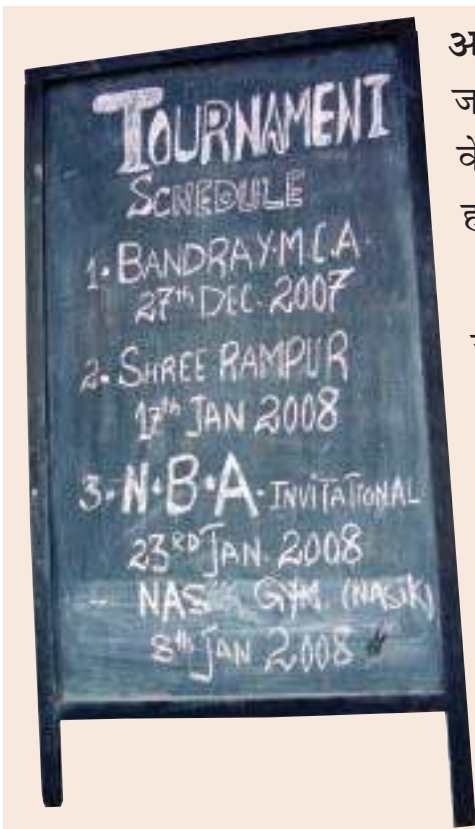 TOURNAMENT
SCHEDULE
1. BANDRA Y.M.C.A.
27th DEC. 2007
2. SHREE RAMPUR
17th JAN 2008
3. N.B.A. INVITATIONAL
23RD JAN. 2008
- NAS GYM. (NASIK)
8th JAN 2008